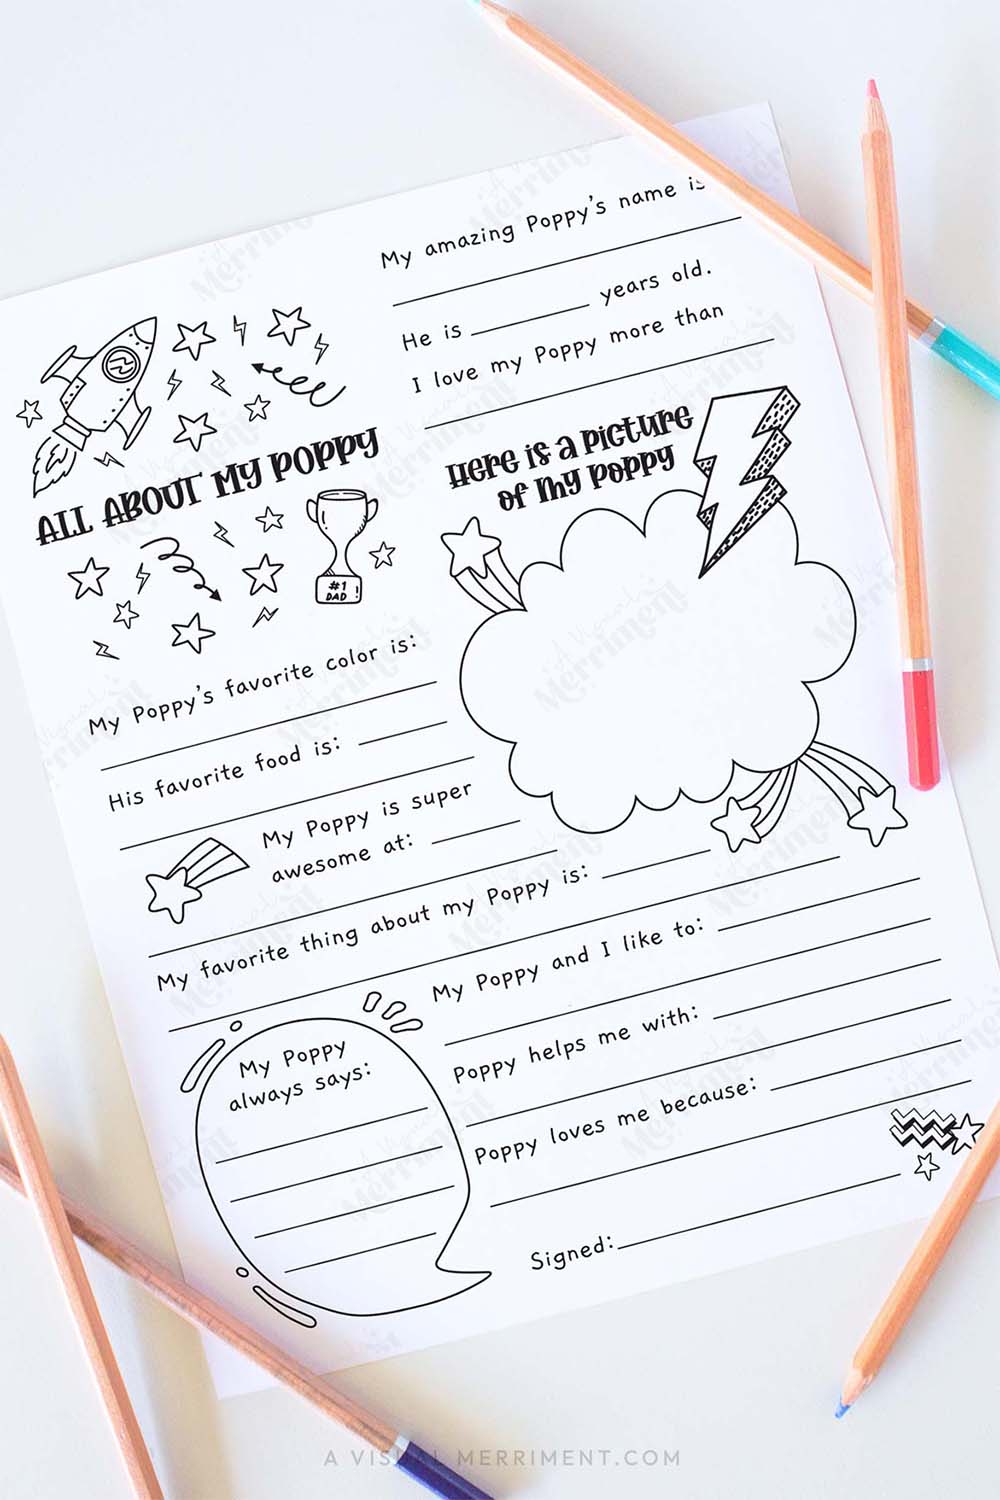 My amazing Poppy's name is
He is ________ years old.
I love my Poppy more than
ALL ABOUT MY POPPY
#1
DAD
!
Here is a picture
of my Poppy
My Poppy's favorite color is:
His favorite food is:
My Poppy is super
awesome at:
My favorite thing about my Poppy is:
My Poppy and I like to:
Poppy helps me with:
Poppy loves me because:
My Poppy
always says:
Signed:
A VISUAL MERRIMENT.COM